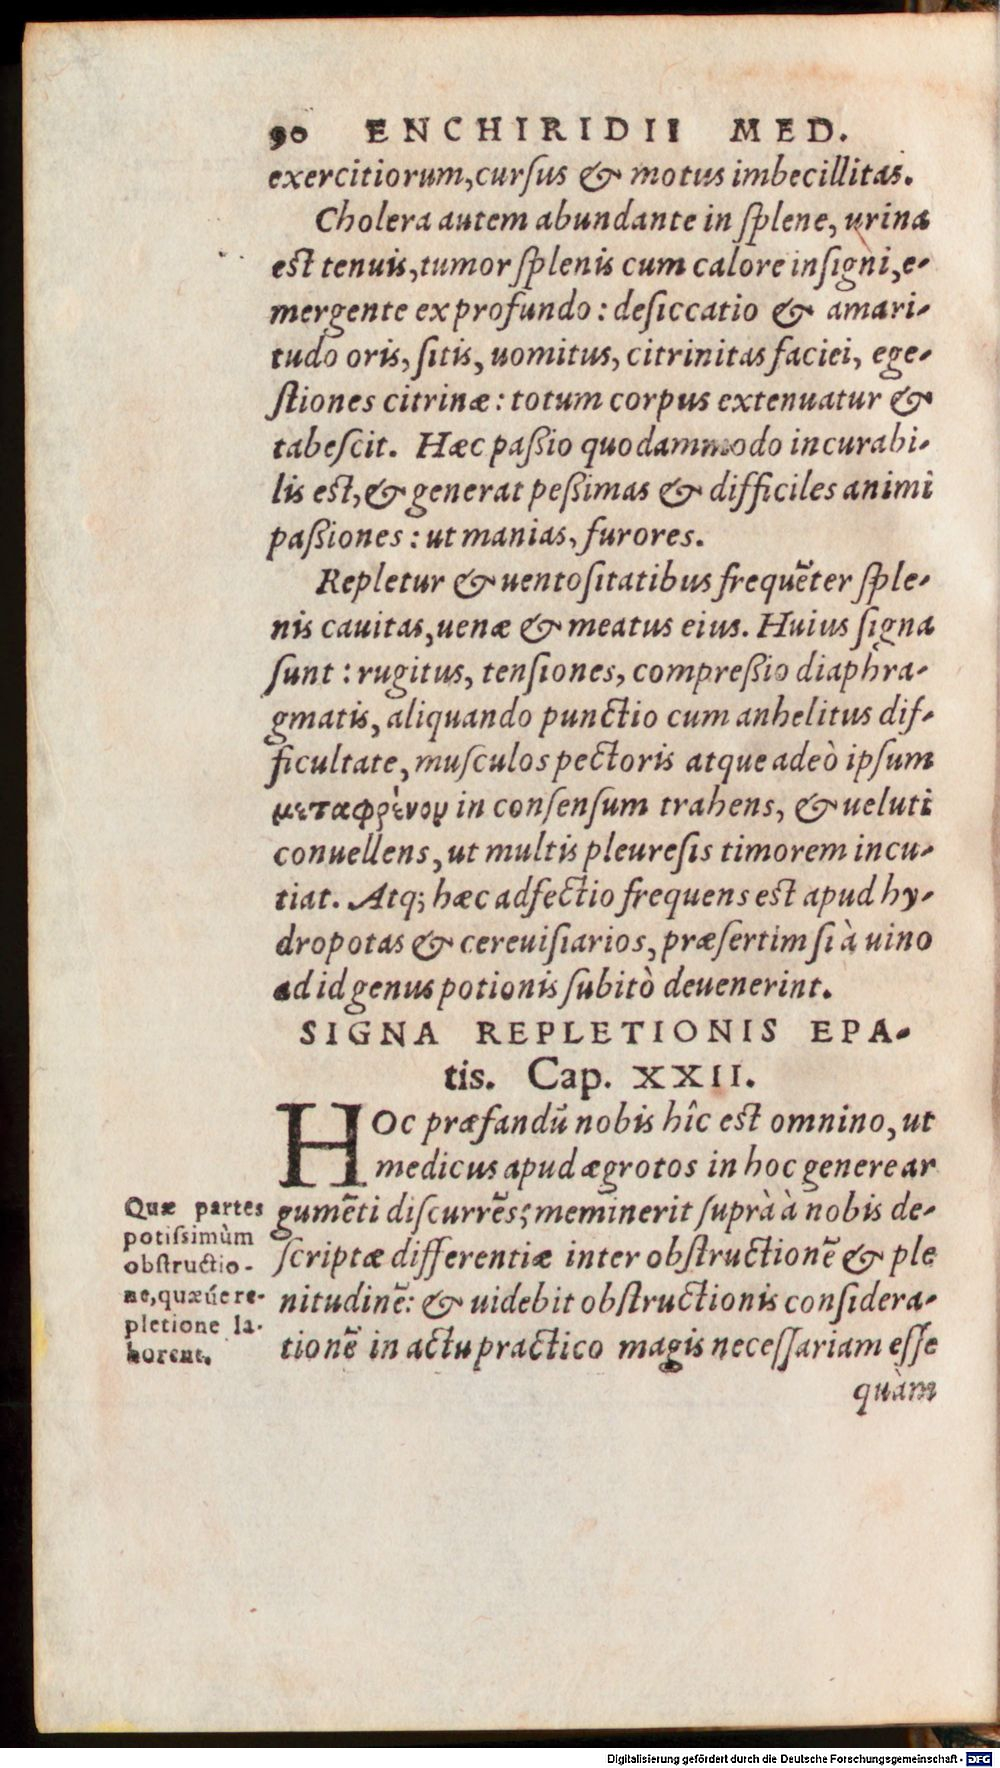 90 ENCHIRIDII MED.
exercitiorum, cursus & motus imbecillitas.
Cholera autem abundante in splene, urina
est tenuis, tumor splenis cum calore insigni, e-
mergente ex profundo: desiccatio & amari-
tudo oris, sitis, uomitus, citrinitas faciei, ege-
stiones citrinæ: totum corpus extenuatur &
tabescit. Hæc paßio quodammodo incurabi-
lis est, & generat peßimas & difficiles animi
paßiones: ut manias, furores.
Repletur & uentositatibus frequẽter sple-
nis cauitas, uenæ & meatus eius. Huius signa
sunt: rugitus, tensiones, compreßio diaphra-
gmatis, aliquando punctio cum anhelitus dif-
ficultate, musculos pectoris atque adeò ipsum
μεταφρένου in consensum trahens, & ueluti
conuellens, ut multis pleuresis timorem incu-
tiat. Atq; hæc adfectio frequens est apud hy-
dropotas & cereuisiarios, præsertim si à uino
ad id genus potionis subitò deuenerint.
SIGNA REPLETIONIS EPA-
tis. Cap. XXII.
HOc præfandũ nobis hîc est omnino, ut
medicus apud ægrotos in hoc genere ar
gumẽti discurrẽs; meminerit suprà à nobis de-
scriptæ differentiæ inter obstructionẽ & ple
nitudinẽ: & uidebit obstructionis considera-
tionẽ in actu practico magis necessariam esse
quàm
Quæ partes
potissimùm
obstructio-
ne, quæúe re-
pletione la-
borent.
Digitalisierung gefördert durch die Deutsche Forschungsgemeinschaft - DFG